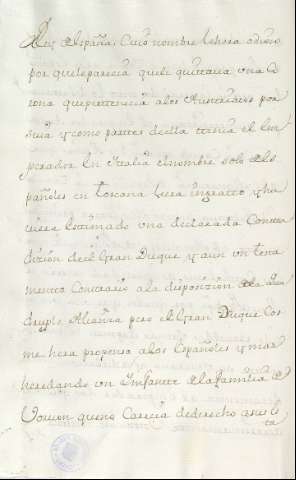 Rey de España: Cuio nombre le hera odioso
por que le parecia que le quitava una co
rona que pertenecia alos Austriacos por
suia y como partes de ella tenia el Em
perador En Italia el nombre solo de Es
pañoles en toscana le era ingratto y hu
viera Estimado una declarada Contra
dicion de el Gran Duque y aun un testa
mento Contrario ala disposizion de la Qua
druple Alianza pero el Gran Duque Cos
me hera propenso alos Españoles y mas
heredando un Infante de la familia de
Vorvon que no Carecia de derecho a sus Es
ta